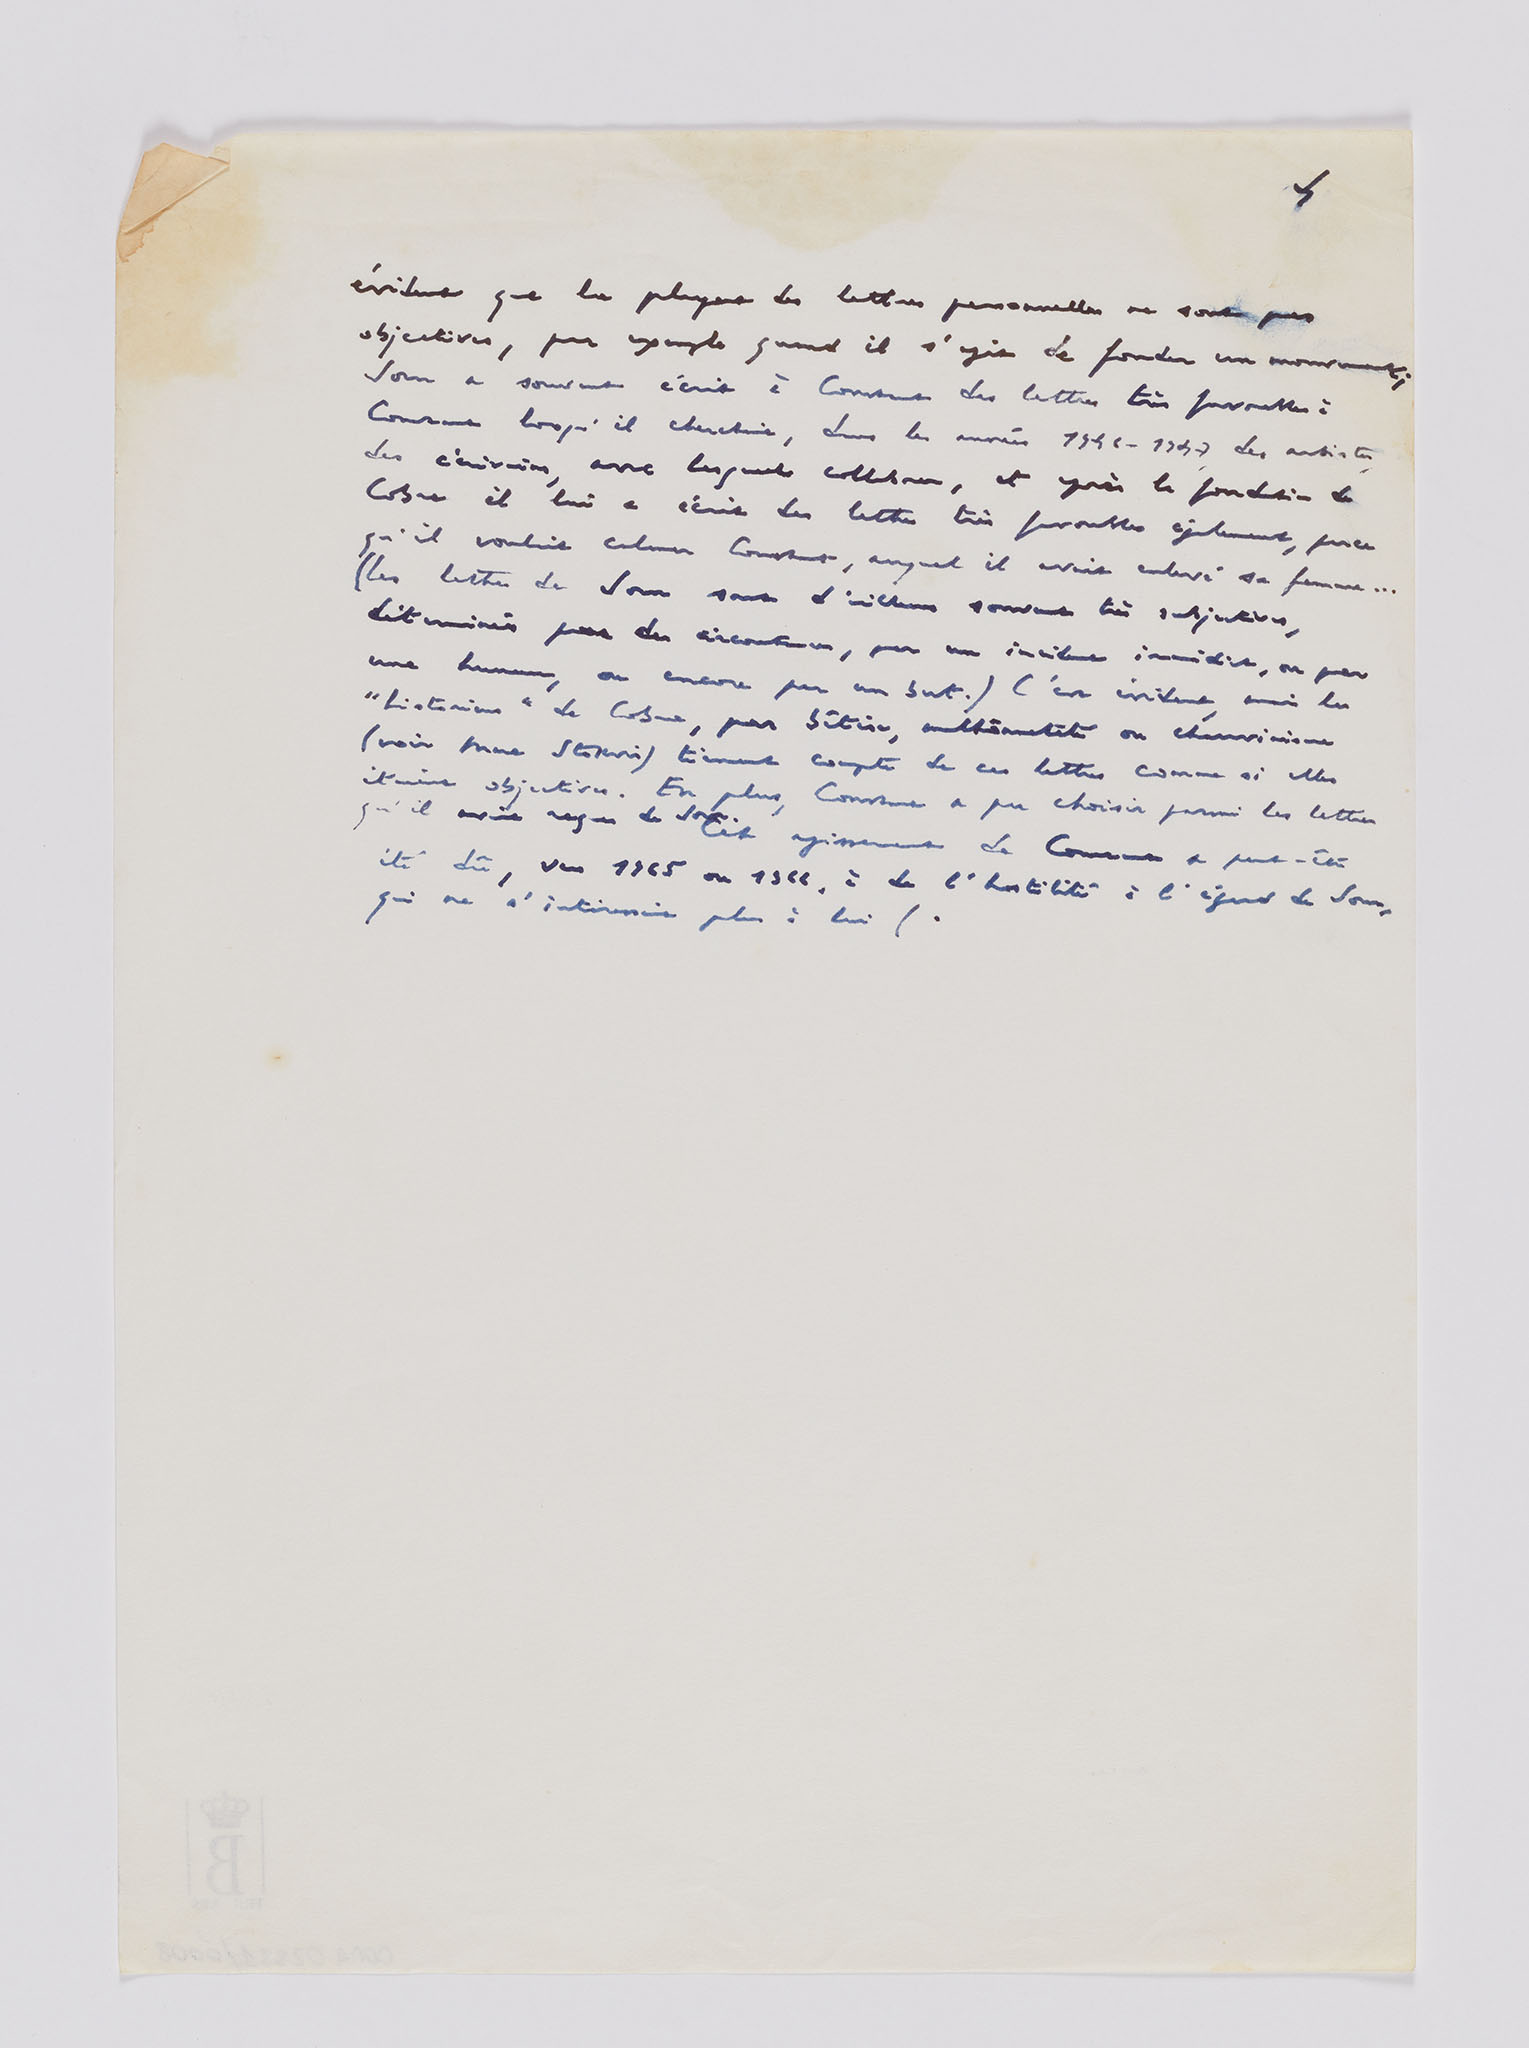 4
évident que la plupart des lettres personnelles ne sont pas
objectives, par exemple quand il s'agit de fonder un mouvement;
Jorn a souvent écrit à Constant des lettres très favorables à
Constant lorsqu'il cherchait, dans les années 1946-1947, des artistes,
des écrivains, avec lesquels collaborer, et après la fondation de
Cobra il lui a écrit des lettres très favorables également, parce
qu'il voulait calmer Constant, auquel il avait enlevé sa femme...
(les lettres de Jorn sont d'ailleurs souvent très subjectives,
déterminées par des circonstances, par un incident immédiat, ou par
une humeur, ou encore par un but.) C'est évident, mais les
"historiens" de Cobra, par bêtise, malhonnêteté ou chauvinisme
(voir Mme Stokvis) tiennent compte de ces lettres comme si elles
étaient objectives. En plus, Constant a pu choisir parmi les lettres
qu'il avait reçues de Jorn. Cet agissement de Constant a peut-être
été dû, vers 1965 ou 1966, à de l'hostilité à l'égard de Jorn,
qui ne s'intéressait plus à lui (.
B